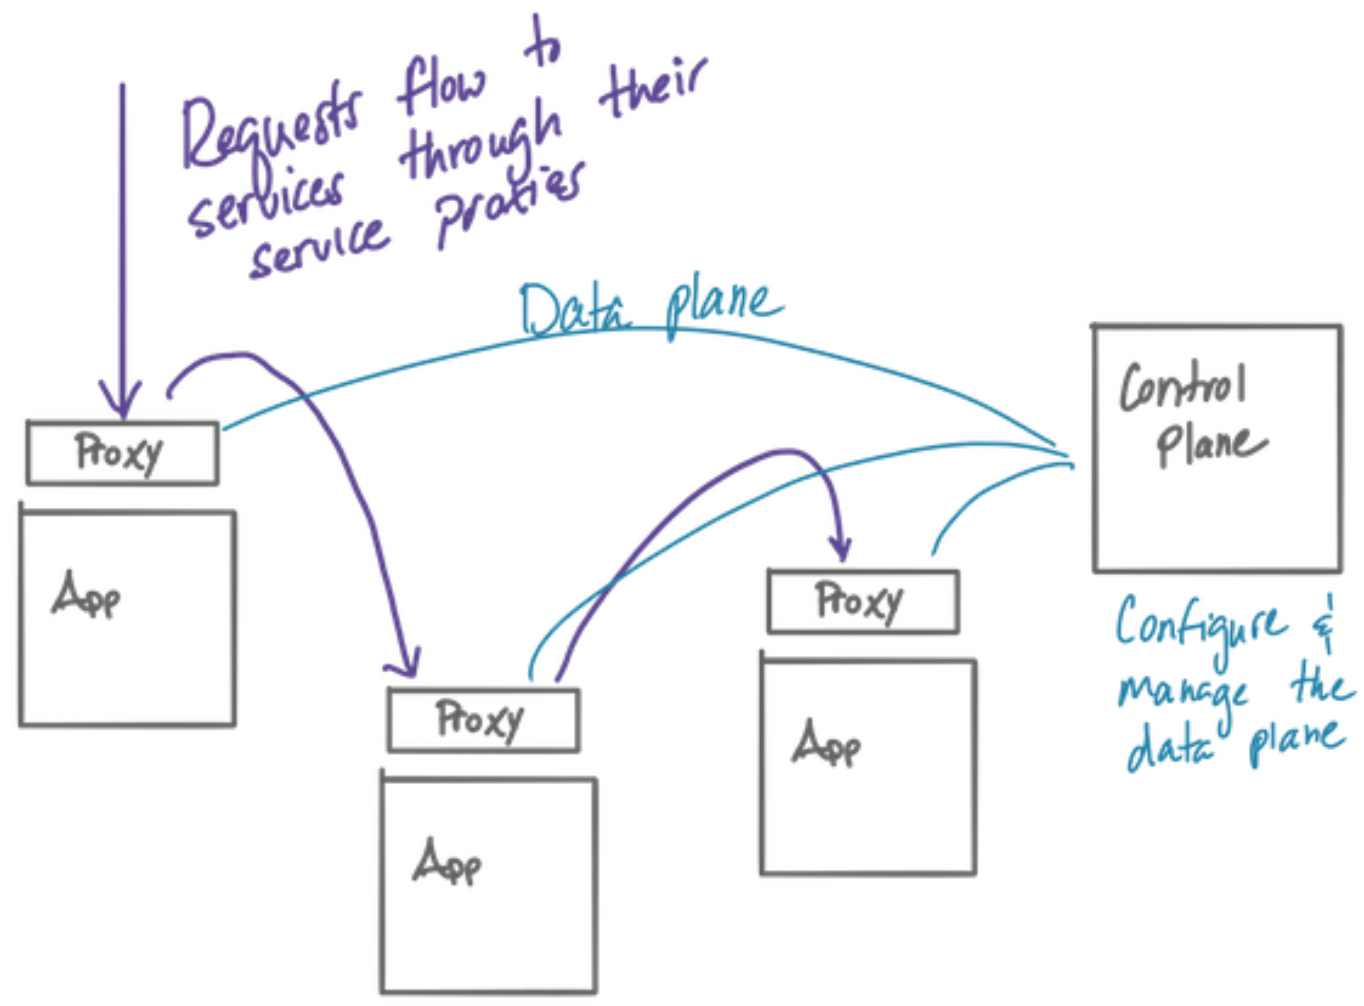 Requests flow to
services through their
service proxies
Data plane
Control
Plane
Proxy
App
Proxy
App
Proxy
App
Configure &
manage the
data plane